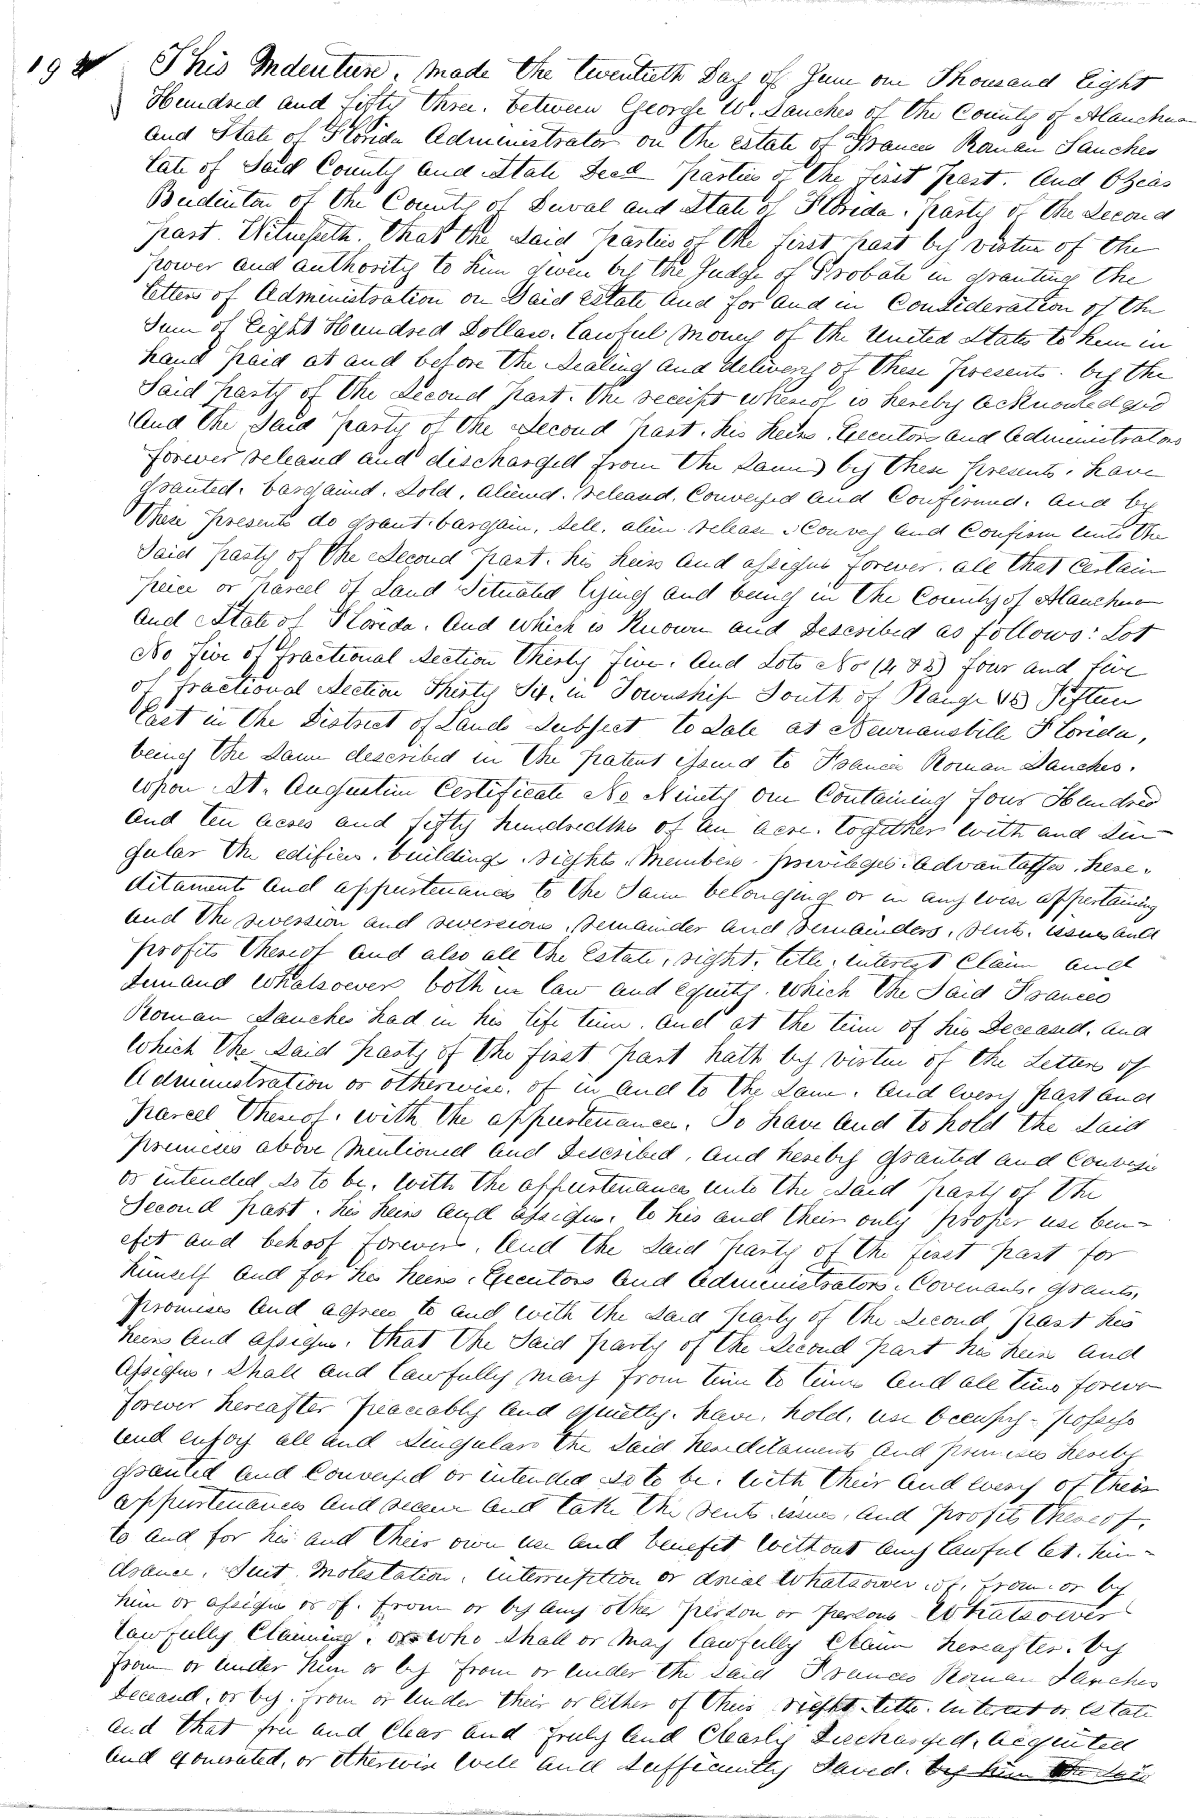 19
This Indenture, made the twentieth Day of June one Thousand Eight
Hundred and fifty three. between George W. Sanches of the County of Alanchua
and State of Florida Administrator on the estate of Frances Roman Sanches
late of Said County and State Decd parties of the first part. and Ozias
Budinton of the County of Duval and State of Florida. party of the Second
part. Witnesseth. that the said parties of the first part by virtue of the
power and authority to him given by the Judge of Probate in granting the
letters of Administration on Said estate and for and in Consideration of the
Sum of Eight Hundred Dollars. lawful money of the United States to him in
hand paid at and before the Sealing and delivery of these presents. by the
Said party of the Second part. the receipt whereof is hereby acknowledged
And the Said party of the Second part. his heirs. Executors and Administrators
forever released and discharged from the Same by these presents. have
granted. bargained. Sold. aliend. releasd. Conveyed and Confirmed. and by
these presents do grant. bargain. Sell. alien release Convey and Confirm unto the
Said party of the Second part. his heirs and assigns forever. all that Certain
peice or parcel of Land Situated lying and being in the County of Alanchua
and State of Florida. And which is Known and Described as follows: Lot
No five of fractional Section Thirty five. And Lots No (4 & 5) four and five
of fractional Section Thirty Six. in Township South of Range (15) Fifteen
East in the District of Lands Subject to Sale at Newnansville Florida,
being the Same described in the patent issued to Francis Roman Sanches.
upon St. Augustine Certificate No Ninety one Containing four Hundred
and ten acres and fifty hundredths of an acre. together with and Sin-
gular the edifices. buildings. rights. Members. privileges. advantages. here-
ditaments and appurtenances to the Same belonging or in any wise appertaining
and the reversion and reversions, remainder and remainders, rents. issues and
profits thereof and also all the Estate, right. title. interest Claim and
demand whatsoever both in law and equity. which the Said Frances
Roman Sanches had in his life time. and at the time of his Deceased. and
which the Said party of the first part hath by virtue of the Letters of
Administration or otherwise. of in and to the Same. and every part and
parcel thereof. with the appurtenances. To have and to hold the Said
premises above Mentioned and Described. and hereby granted and Conveyed
or intended so to be. with the appurtenances unto the Said party of the
Second part. his heirs and assigns. to his and their only proper use ben-
efit and behoof forever. And the Said party of the first part for
himself and for his heirs. Executors and Administrators. Covenants. grants,
promises and agrees to and with the Said party of the Second part his
heirs and assigns. that the Said party of the Second part his heirs and
Assigns. Shall and lawfully may from time to time and all time forever
forever hereafter peaceably and quietly. have. hold. use occupy - possess
and enjoy all and Singular the Said hereditaments and premises hereby
granted and Conveyed or intended so to be. with their and every of their
appurtenances and receive and take the rents. issues. and profits thereof.
to and for his and their own use and benefit without any lawful let. hin-
drance. Suit. Molestation. interruption or denial whatsoever. of. from. or by
him or assigns or of. from or by any other person or persons Whatsoever
lawfully Claiming. or who Shall or May lawfully Claim hereafter. by
from or under him or by from or under the Said Frances Roman Sanches
Deceasd. or by. from or under their or either of their right. title. interest or estate
and that free and Clear and freely and Clearly Discharged. acquited
and exonerated, or otherwise well and Sufficiently Saved. by him the Said